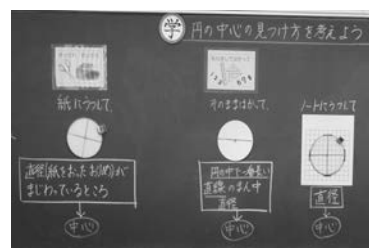 学 円の中心の見つけ方を考えよう
紙にうつして、
直径(紙をおったおりめ)が
まじわっているところ
中心
そのままはかって、
円の中で一番長い
直線のまん中
直径
中心
ノートにうつして
直径
中心